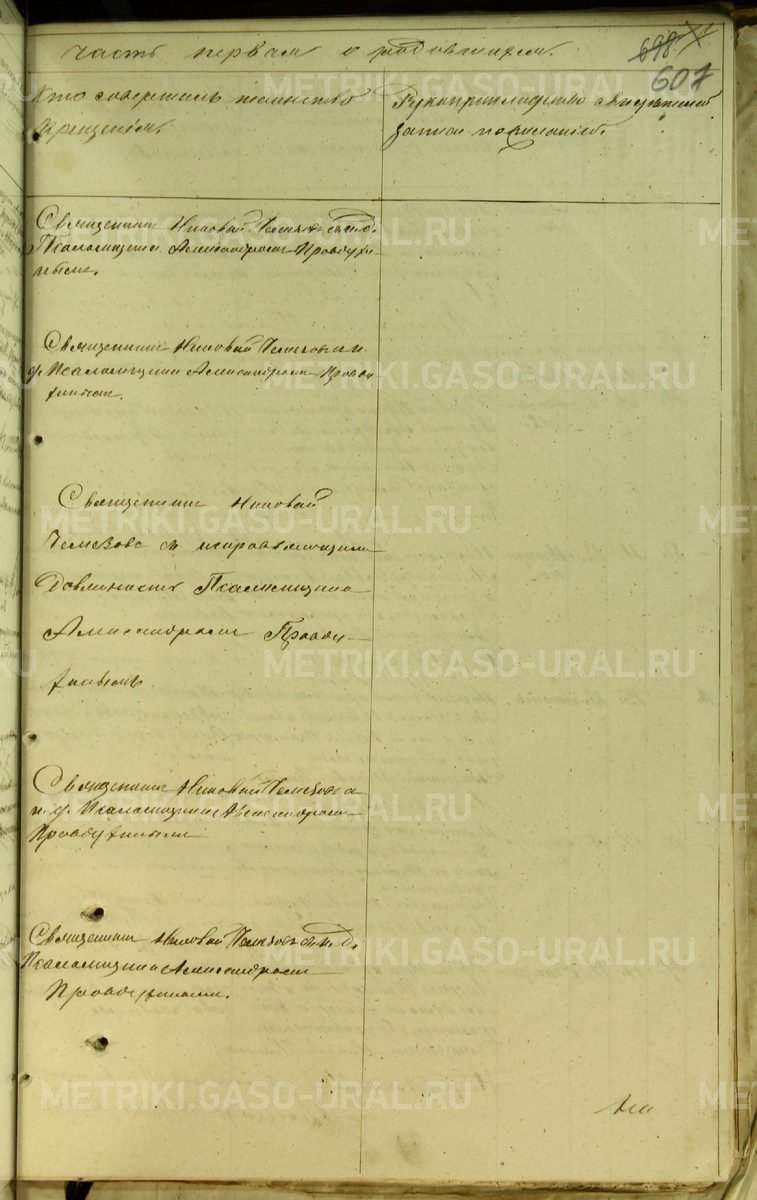 часть первая о родившихся.
698
607
Кто совершалъ таинство
крещенія.
Рукоприкладство свидѣтелей
записи по желанію.
Священникъ Николай Чемезовъ съ и. д.
Псаломщика Александромъ Правдухи-
нымъ.
Священникъ Николай Чемезовъ и.
д. Псаломщика Александромъ Правду
хинымъ.
Священникъ Николай
Чемезовъ съ исправляющимъ
Должность Псаломщика
Александромъ Правду-
хинымъ
Священникъ Николай Чемезовъ съ
и. д. Псаломщика Александромъ
Правдухинымъ
Священникъ Николай Чемезовъ съ и. д.
Псаломщика Александромъ
Правдухинымъ.
METRIKI.GASO-URAL.RU